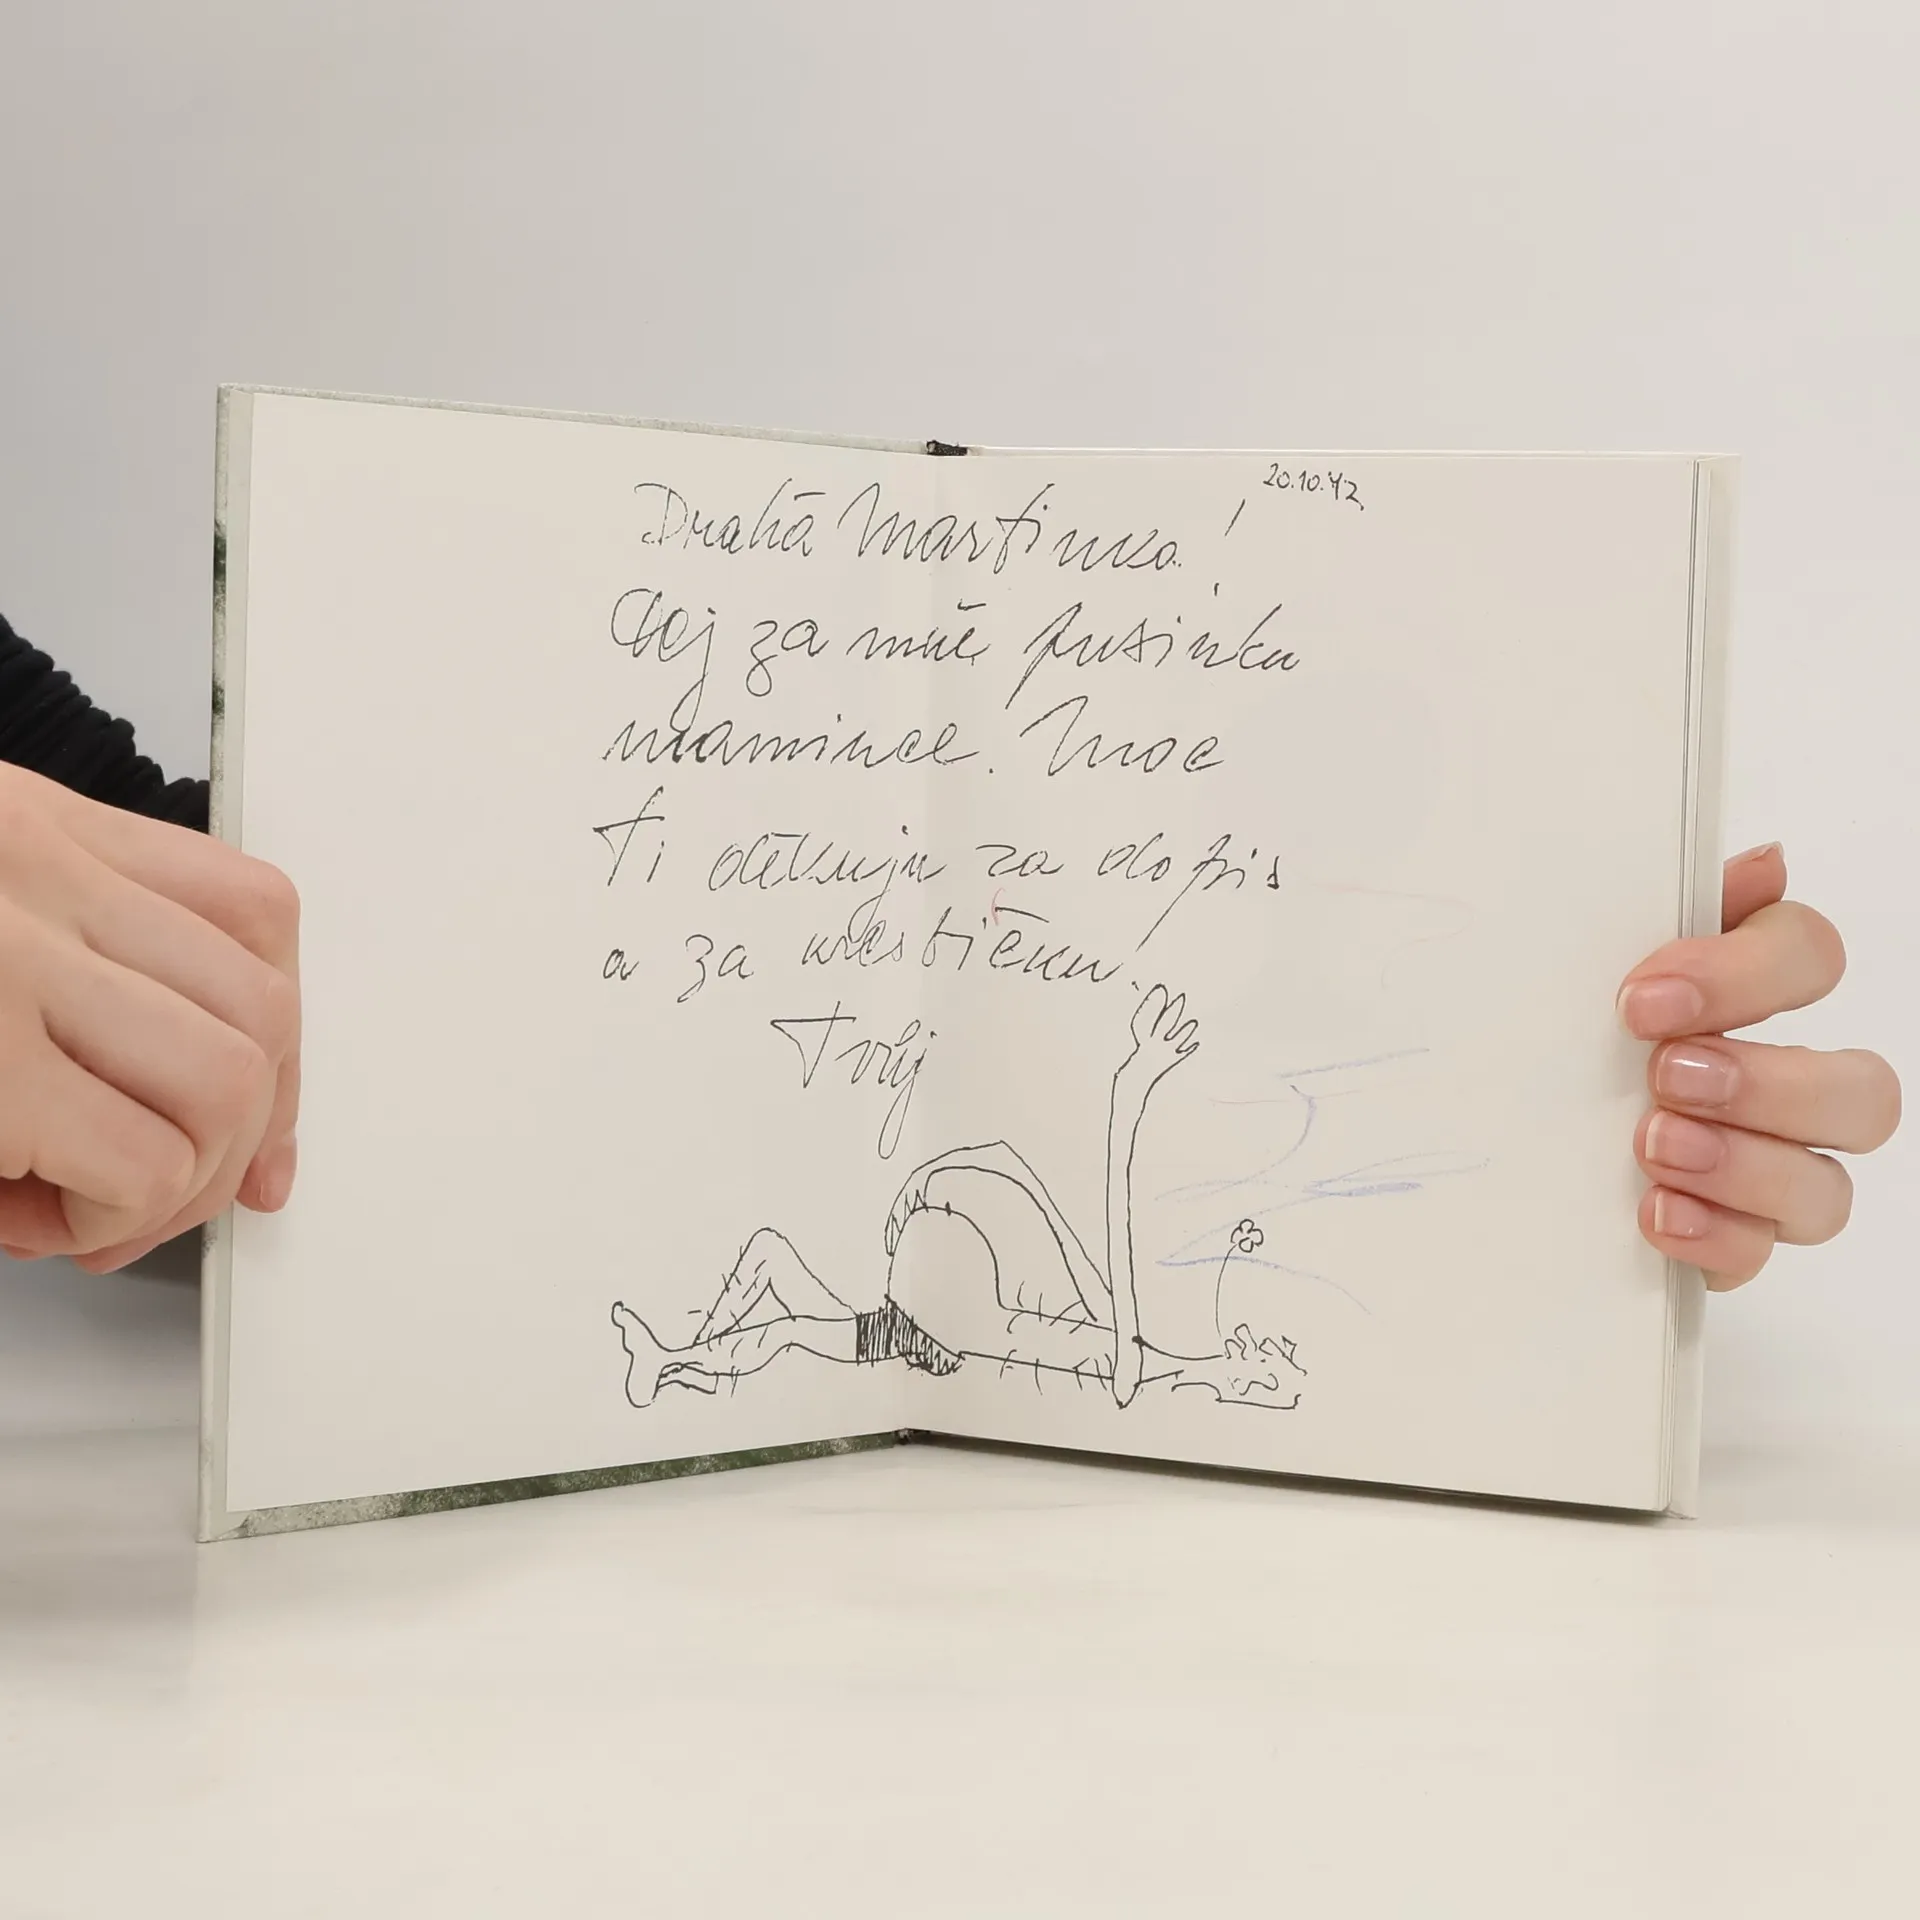 20.10.42
Drahá Martinko!
Dej za mně pusinku
mamince. Moc
Ti děkuju za dopis
a za
Tvůj